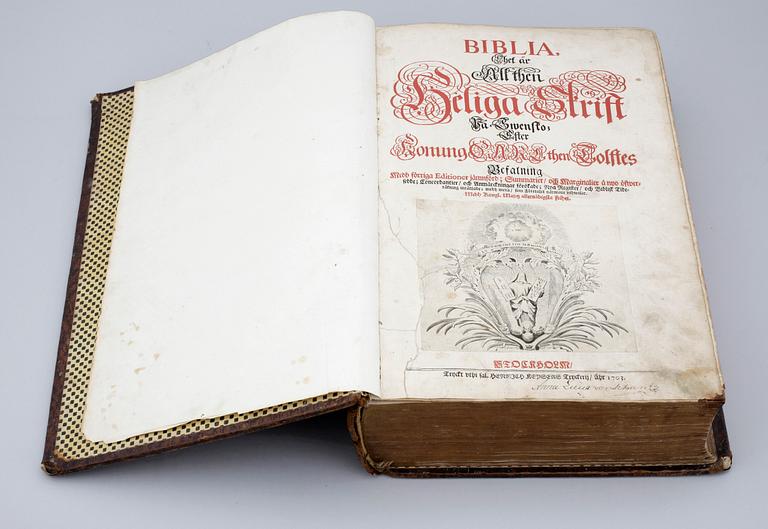 BIBLIA,
Thet är
All then
Heliga Skrift
På Swensko;
Efter
Konung CARL then Tolftes
Befalning
Medh förriga Editioner jämnförd; Summarier/ och Marginalier å nyo öfwer-
sedde; Concordantier/ och Anmärckningar förökade; Nya Register/ och Biblisk Tide-
räkning insatte; medh mera/ som Företalet närmare uthwisar.
Medh Kongl. Maj:tz allernådigste frihet.
STOCKHOLM/
Tryckt uthi sal. HENRICH KEYSERS Tryckerij/ åhr 1703.
Anna